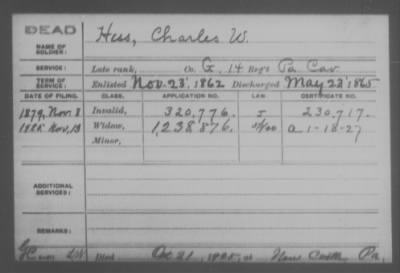 DEAD
NAME OF SOLDIER: Hess, Charles W.
SERVICE: Late rank, Co. G, 14 Reg't Pa Cav
TERM OF SERVICE: Enlisted Nov. 23, 1862 Discharged May 23, 1865
DATE OF FILING. CLASS. APPLICATION NO. LAW. CERTIFICATE NO.
1879, Nov. 8 Invalid, 320,776. 230,717.
Nov, 13 Widow, 1,238,876. a 1-18-27
Minor,
ADDITIONAL SERVICES:
REMARKS:
Died Oct 21, at New Pa,